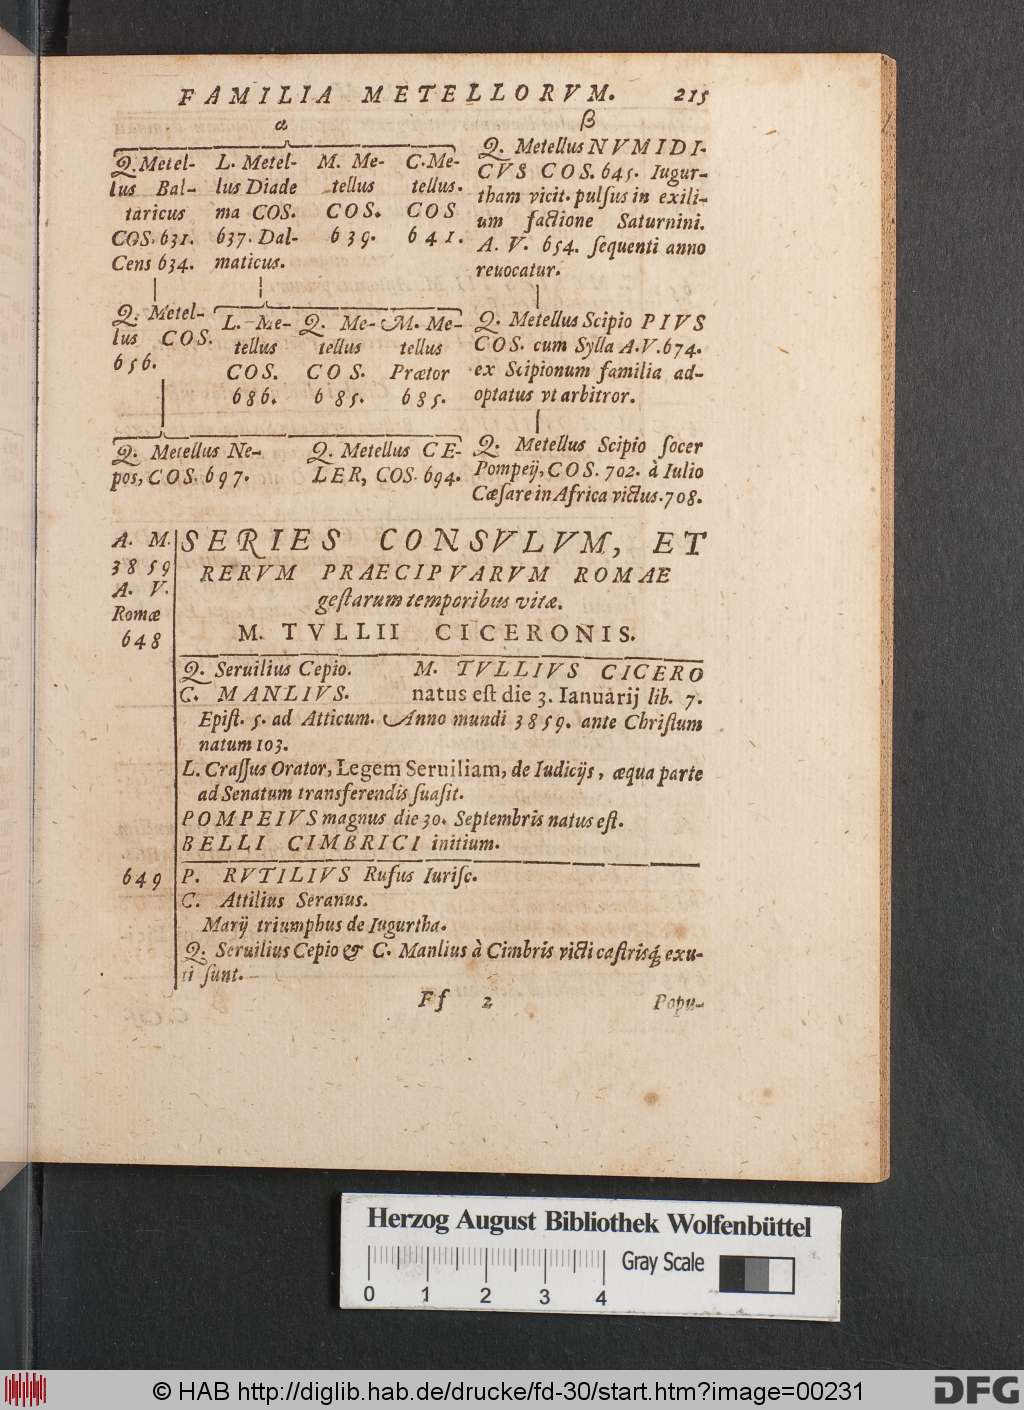 FAMILIA METELLORVM. 215
α
Q. Metel-
lus Bal-
taricus
COS. 631.
Cens 634.
L. Metel-
lus Diade
ma COS.
637. Dal-
maticus.
M. Me-
tellus
COS.
639.
C. Me-
tellus.
COS
641.
Q. Metel-
lus COS.
656.
L. Me-
tellus
COS.
686.
Q. Me-
tellus
COS.
685.
M. Me-
tellus
Prætor
685.
Q. Metellus Ne-
pos, COS. 697.
Q. Metellus CE-
LER, COS. 694.
β
Q. Metellus NVMIDI-
CVS COS. 645. Iugur-
tham vicit. pulſus in exili-
um factione Saturnini.
A. V. 654. ſequenti anno
reuocatur.
Q. Metellus Scipio PIVS
COS. cum Sylla A.V. 674.
ex Scipionum familia ad-
optatus vt arbitror.
Q. Metellus Scipio ſocer
Pompeij, COS. 702. à Iulio
Cæſare in Africa victus. 708.
A. M.
3859
A. V.
Romæ
648
SERIES CONSVLVM, ET
RERVM PRAECIPVARVM ROMAE
geſtarum temporibus vitæ.
M. TVLLII CICERONIS.
Q. Seruilius Cepio. M. TVLLIVS CICERO
C. MANLIVS. natus eſt die 3. Ianuarij lib. 7.
Epiſt. 5. ad Atticum. Anno mundi 3859. ante Chriſtum
natum 103.
L. Craſſus Orator, Legem Seruiliam, de Iudicijs, æqua parte
ad Senatum transferendis ſuaſit.
POMPEIVS magnus die 30. Septembris natus eſt.
BELLI CIMBRICI initium.
649 P. RVTILIVS Rufus Iuriſc.
C. Attilius Seranus.
Marij triumphus de Iugurtha.
Q. Seruilius Cepio & C. Manlius à Cimbris victi caſtrisq́; exu-
ti ſunt.
Ff 2 Popu-
Herzog August Bibliothek Wolfenbüttel
Gray Scale
0 1 2 3 4
© HAB http://diglib.hab.de/drucke/fd-30/start.htm?image=00231
DFG